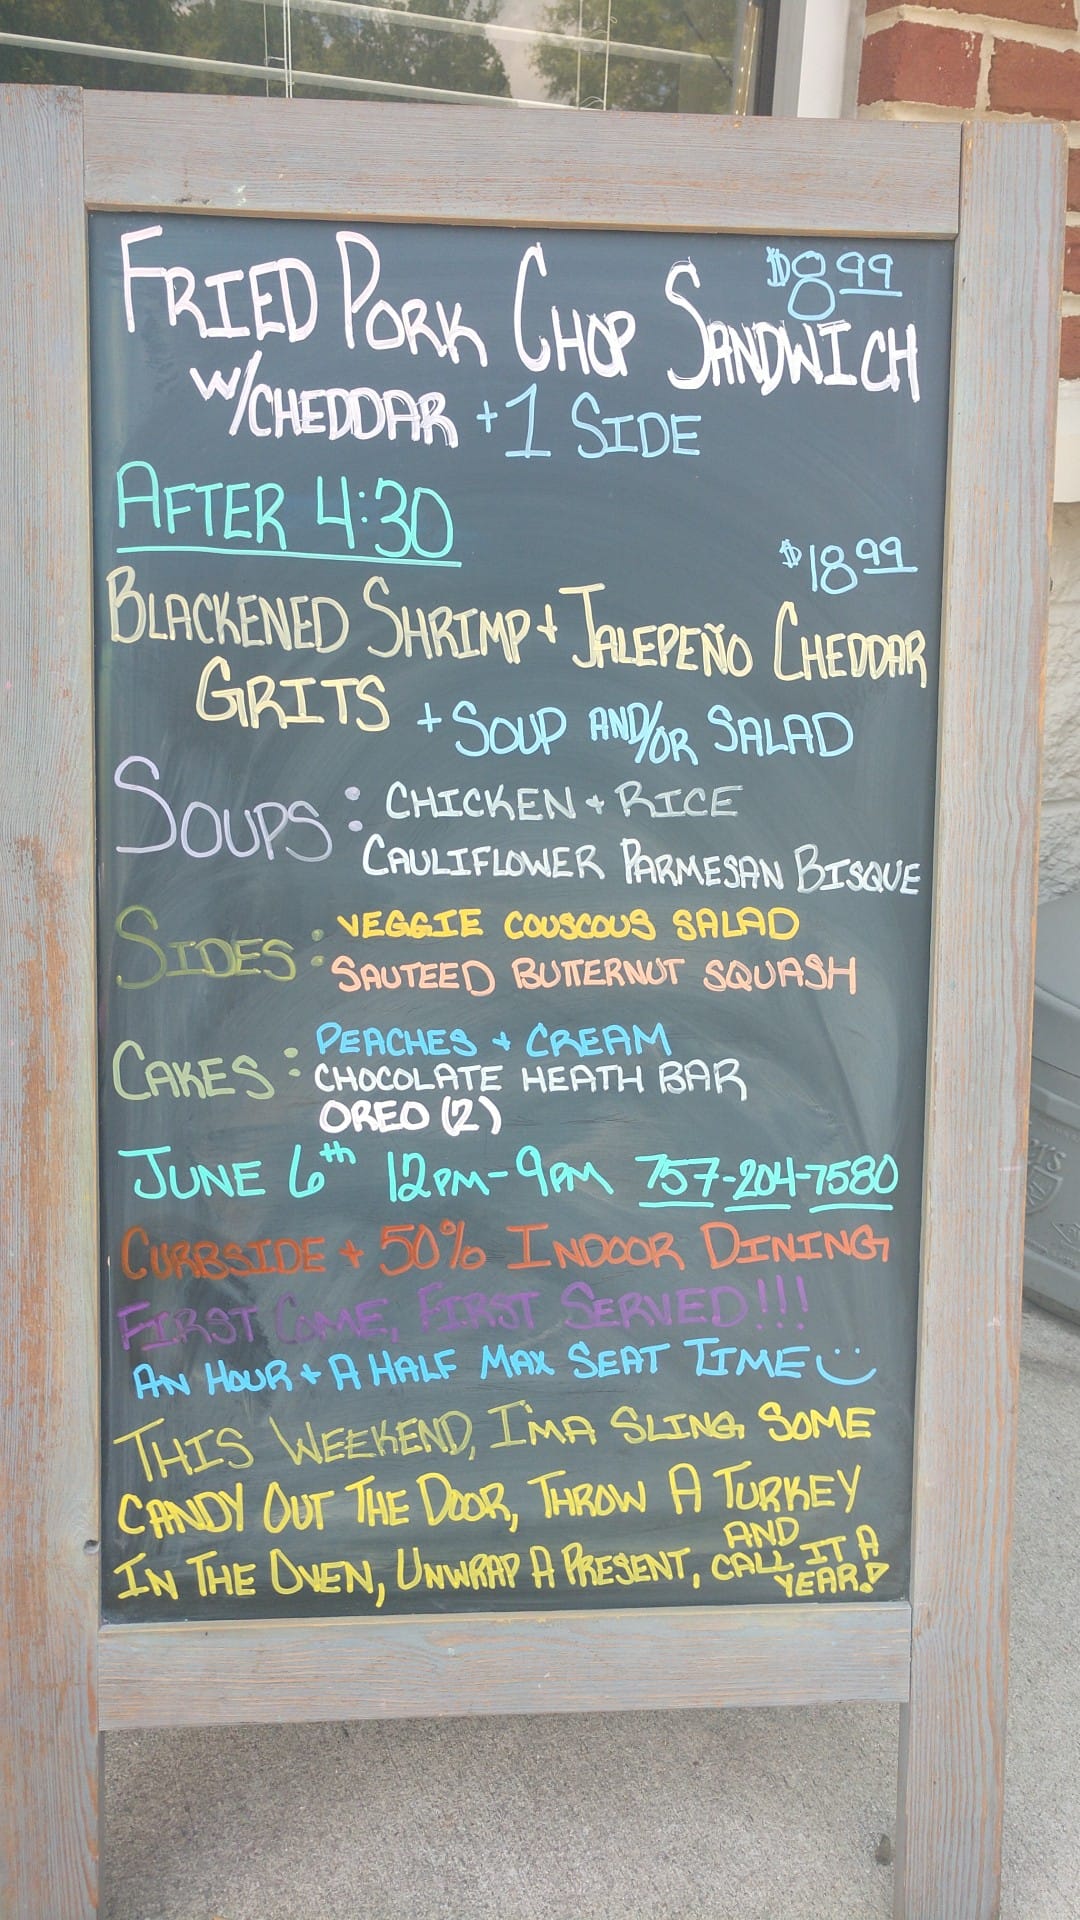 $8.99
FRIED PORK CHOP SANDWICH
W/CHEDDAR + 1 SIDE
AFTER 4:30
$18.99
BLACKENED SHRIMP + JALEPEÑO CHEDDAR
GRITS + SOUP AND/OR SALAD
SOUPS: CHICKEN + RICE
CAULIFLOWER PARMESAN BISQUE
SIDES: VEGGIE COUSCOUS SALAD
SAUTEED BUTTERNUT SQUASH
CAKES: PEACHES + CREAM
CHOCOLATE HEATH BAR
OREO (2)
JUNE 6th 12PM-9PM 757-204-7580
CURBSIDE + 50% INDOOR DINING
FIRST COME, FIRST SERVED!!!
AN HOUR + A HALF MAX SEAT TIME
THIS WEEKEND, I'MA SLING SOME
CANDY OUT THE DOOR, THROW A TURKEY
IN THE OVEN, UNWRAP A PRESENT, AND
CALL IT A
YEAR!